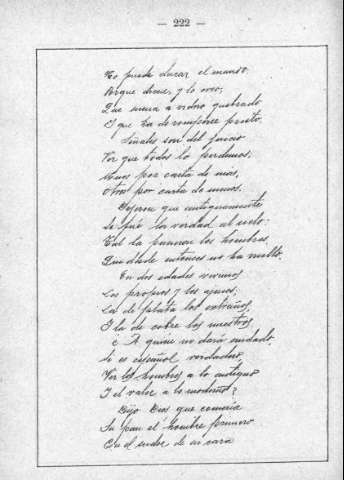 — 222 —
No puede durar el mundo.
Porque dicen, y lo creo,
Que suena a vidro quebrado
I que ha de romperse presto.
Señales son del juicio
Ver que todos lo perdemos,
Unos por carta de mas,
Otros por carta de menos.
Dijeron que antiguamente
Se fué la verdad al cielo.
Tal la pusieron los hombres,
Que desde entonces no ha vuelto.
En dos edades vivimos
Los propios y los ajenos;
La de plata los estraños
I la de cobre los nuestros
¿A quien no dará cuidado,
Si es español verdadero,
Ver los hombres a lo antiguo
I el valor a lo moderno?
Dijo Dios que comeria
Su pan el hombre primero
En el sudor de su cara